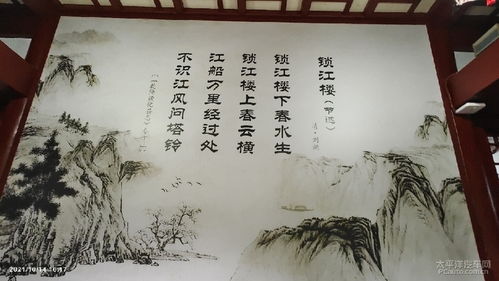 锁江楼（节选）
清·刘
锁江楼下春水生
锁江楼上春云横
江船万里经过处
不识江风问塔铃
2021/10/14 10:17
太平洋汽车网
Pcauto.com.cn